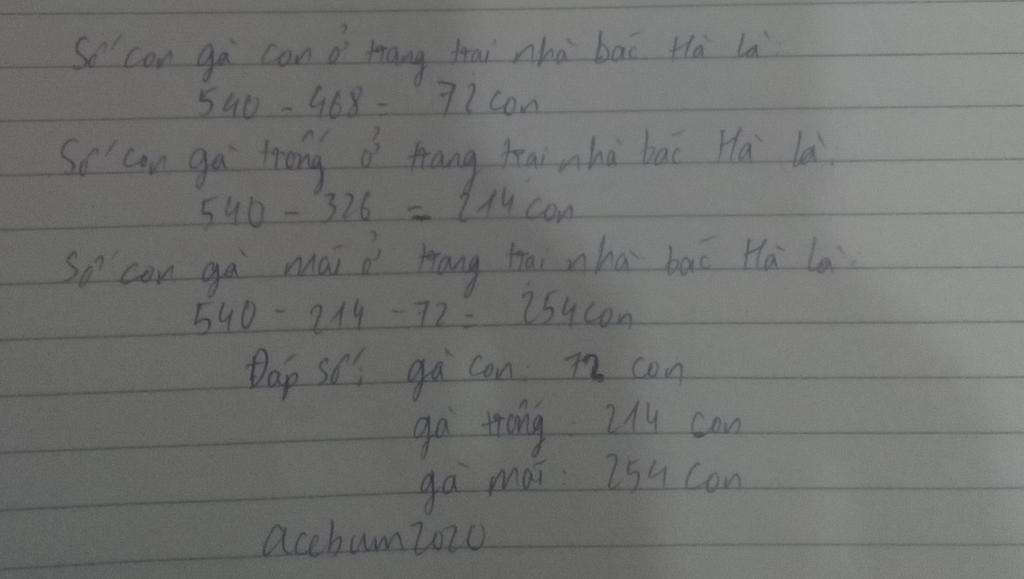 Số con gà con ở trang trại nhà bác Hà là:
540 - 468 = 72 con
Số con gà trống ở trang trại nhà bác Hà là:
540 - 326 = 214 con
Số con gà mái ở trang trại nhà bác Hà là:
540 - 214 - 72 = 254 con
Đáp số: gà con: 72 con
gà trống: 214 con
gà mái: 254 con
acebum2020